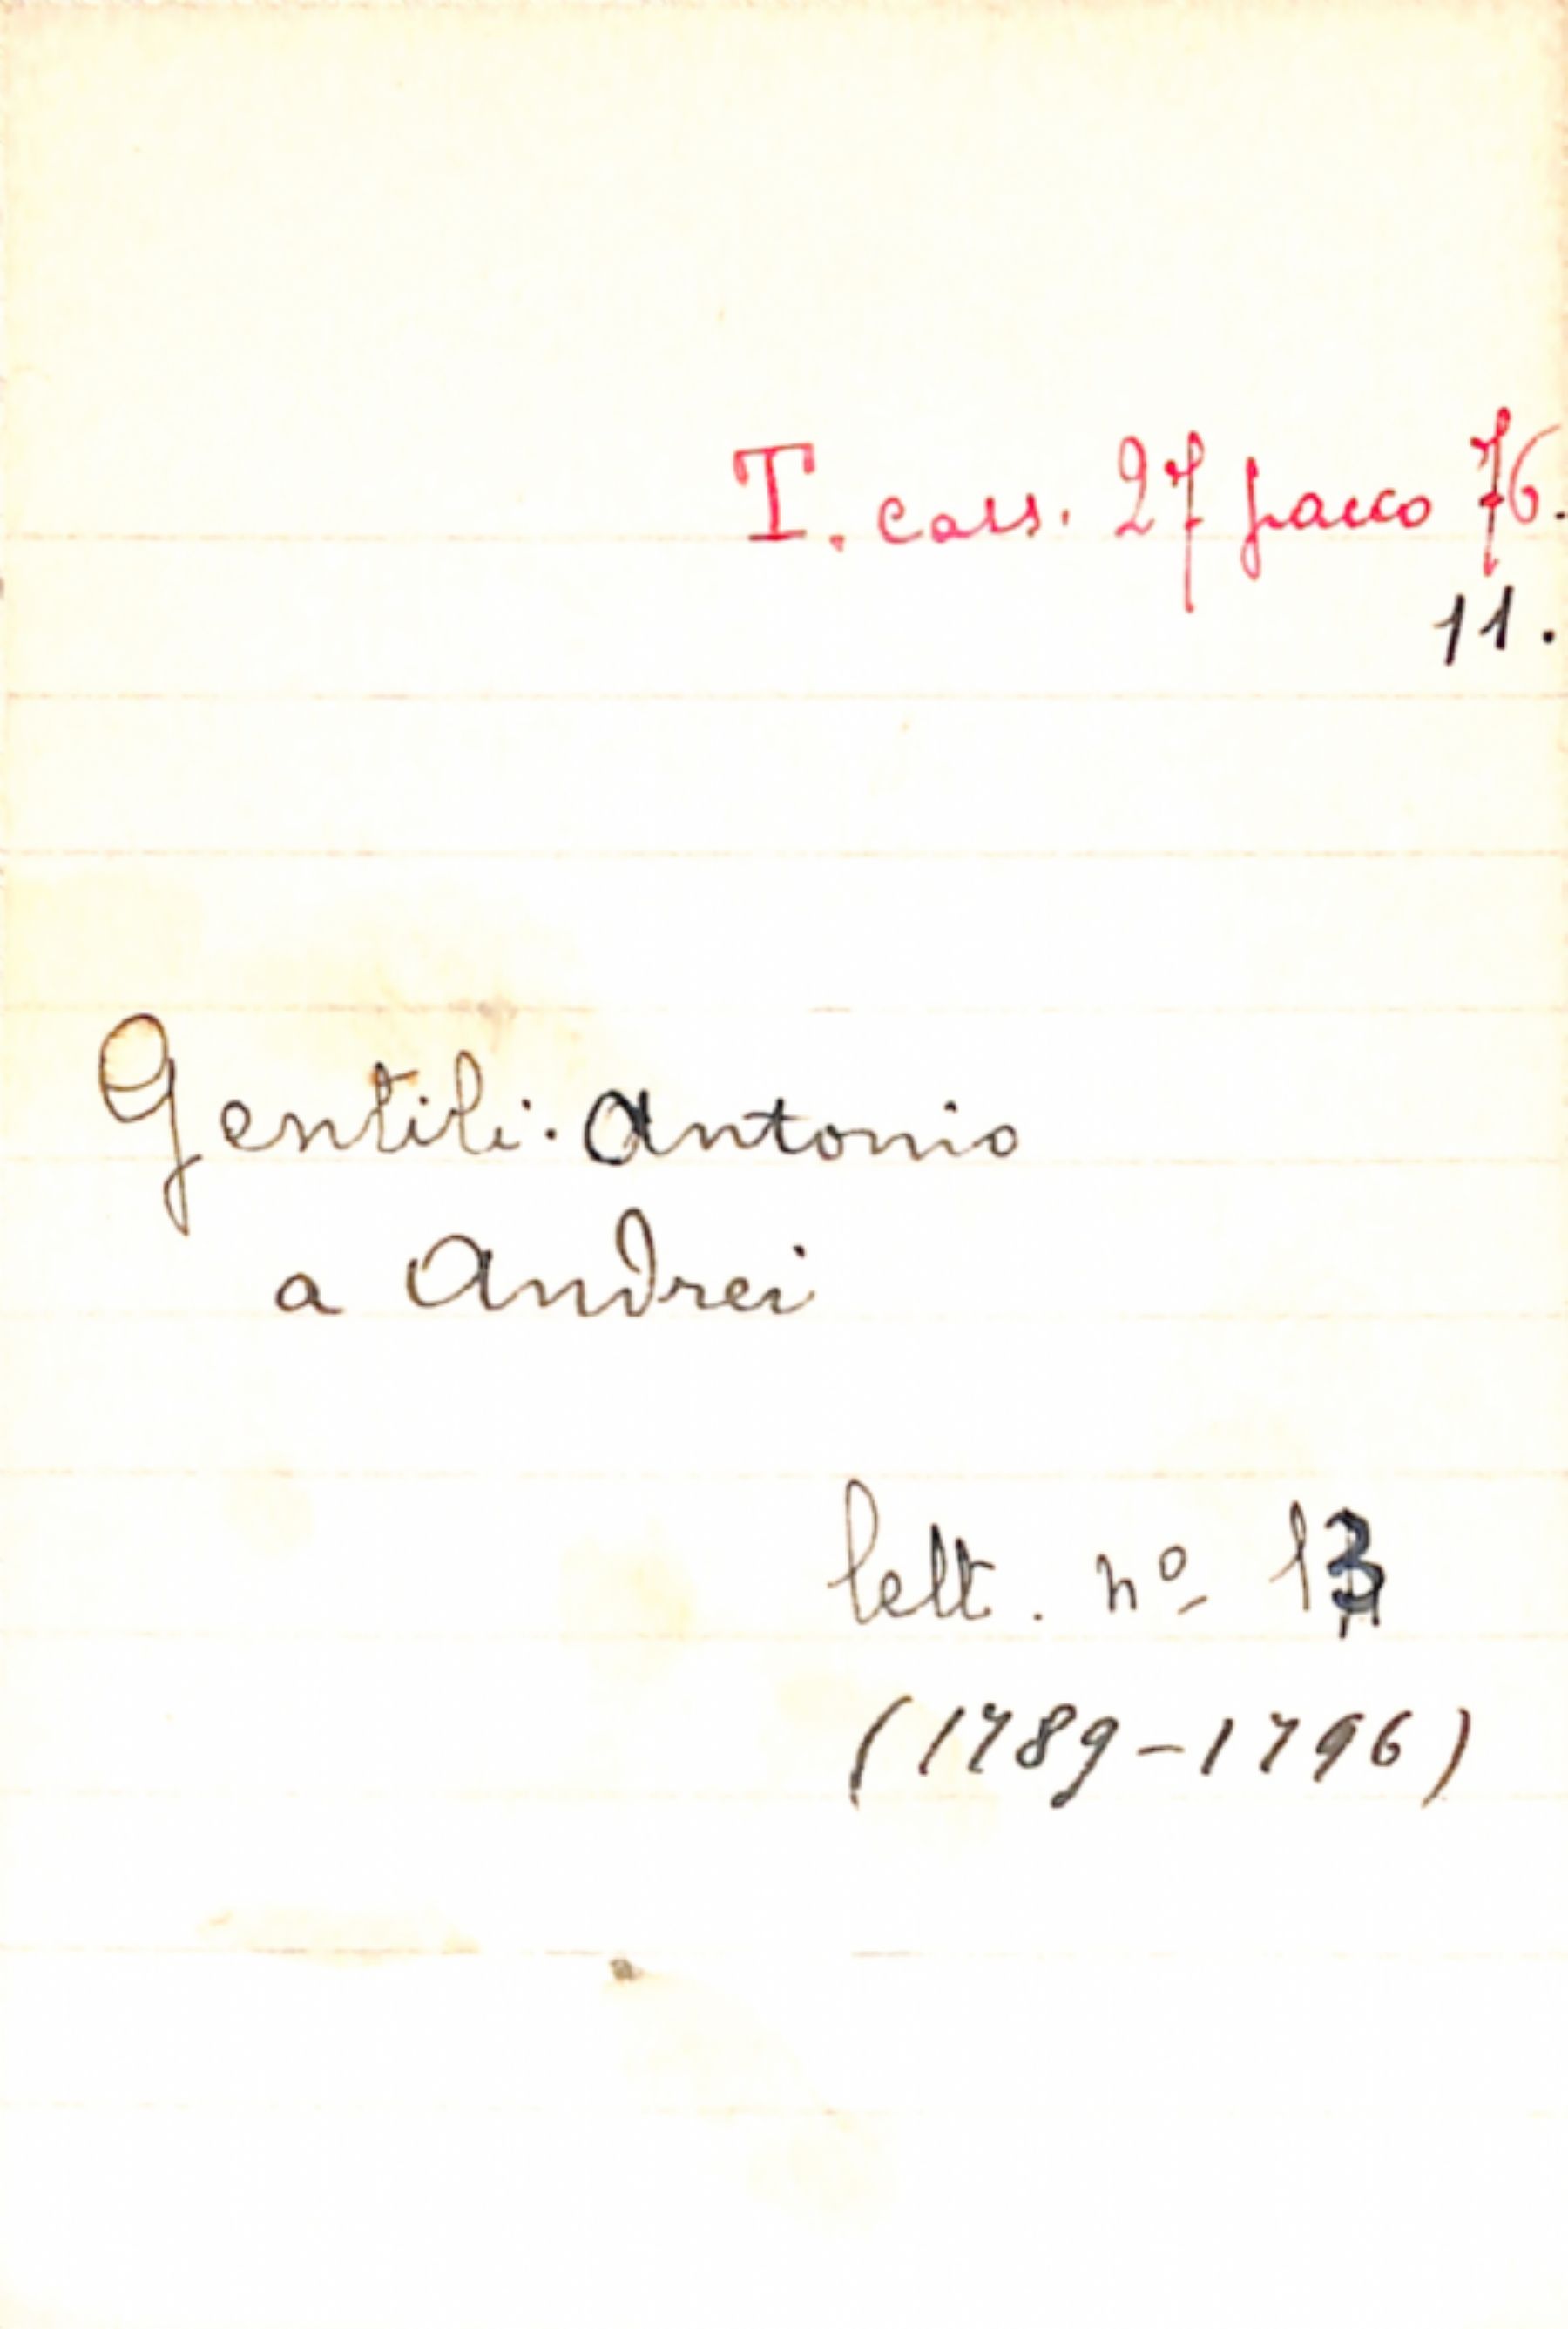 T. cass. 27 pacco 76.
11.
Gentili. Antonio
a Andrei
lett. nº 13
(1789-1796)